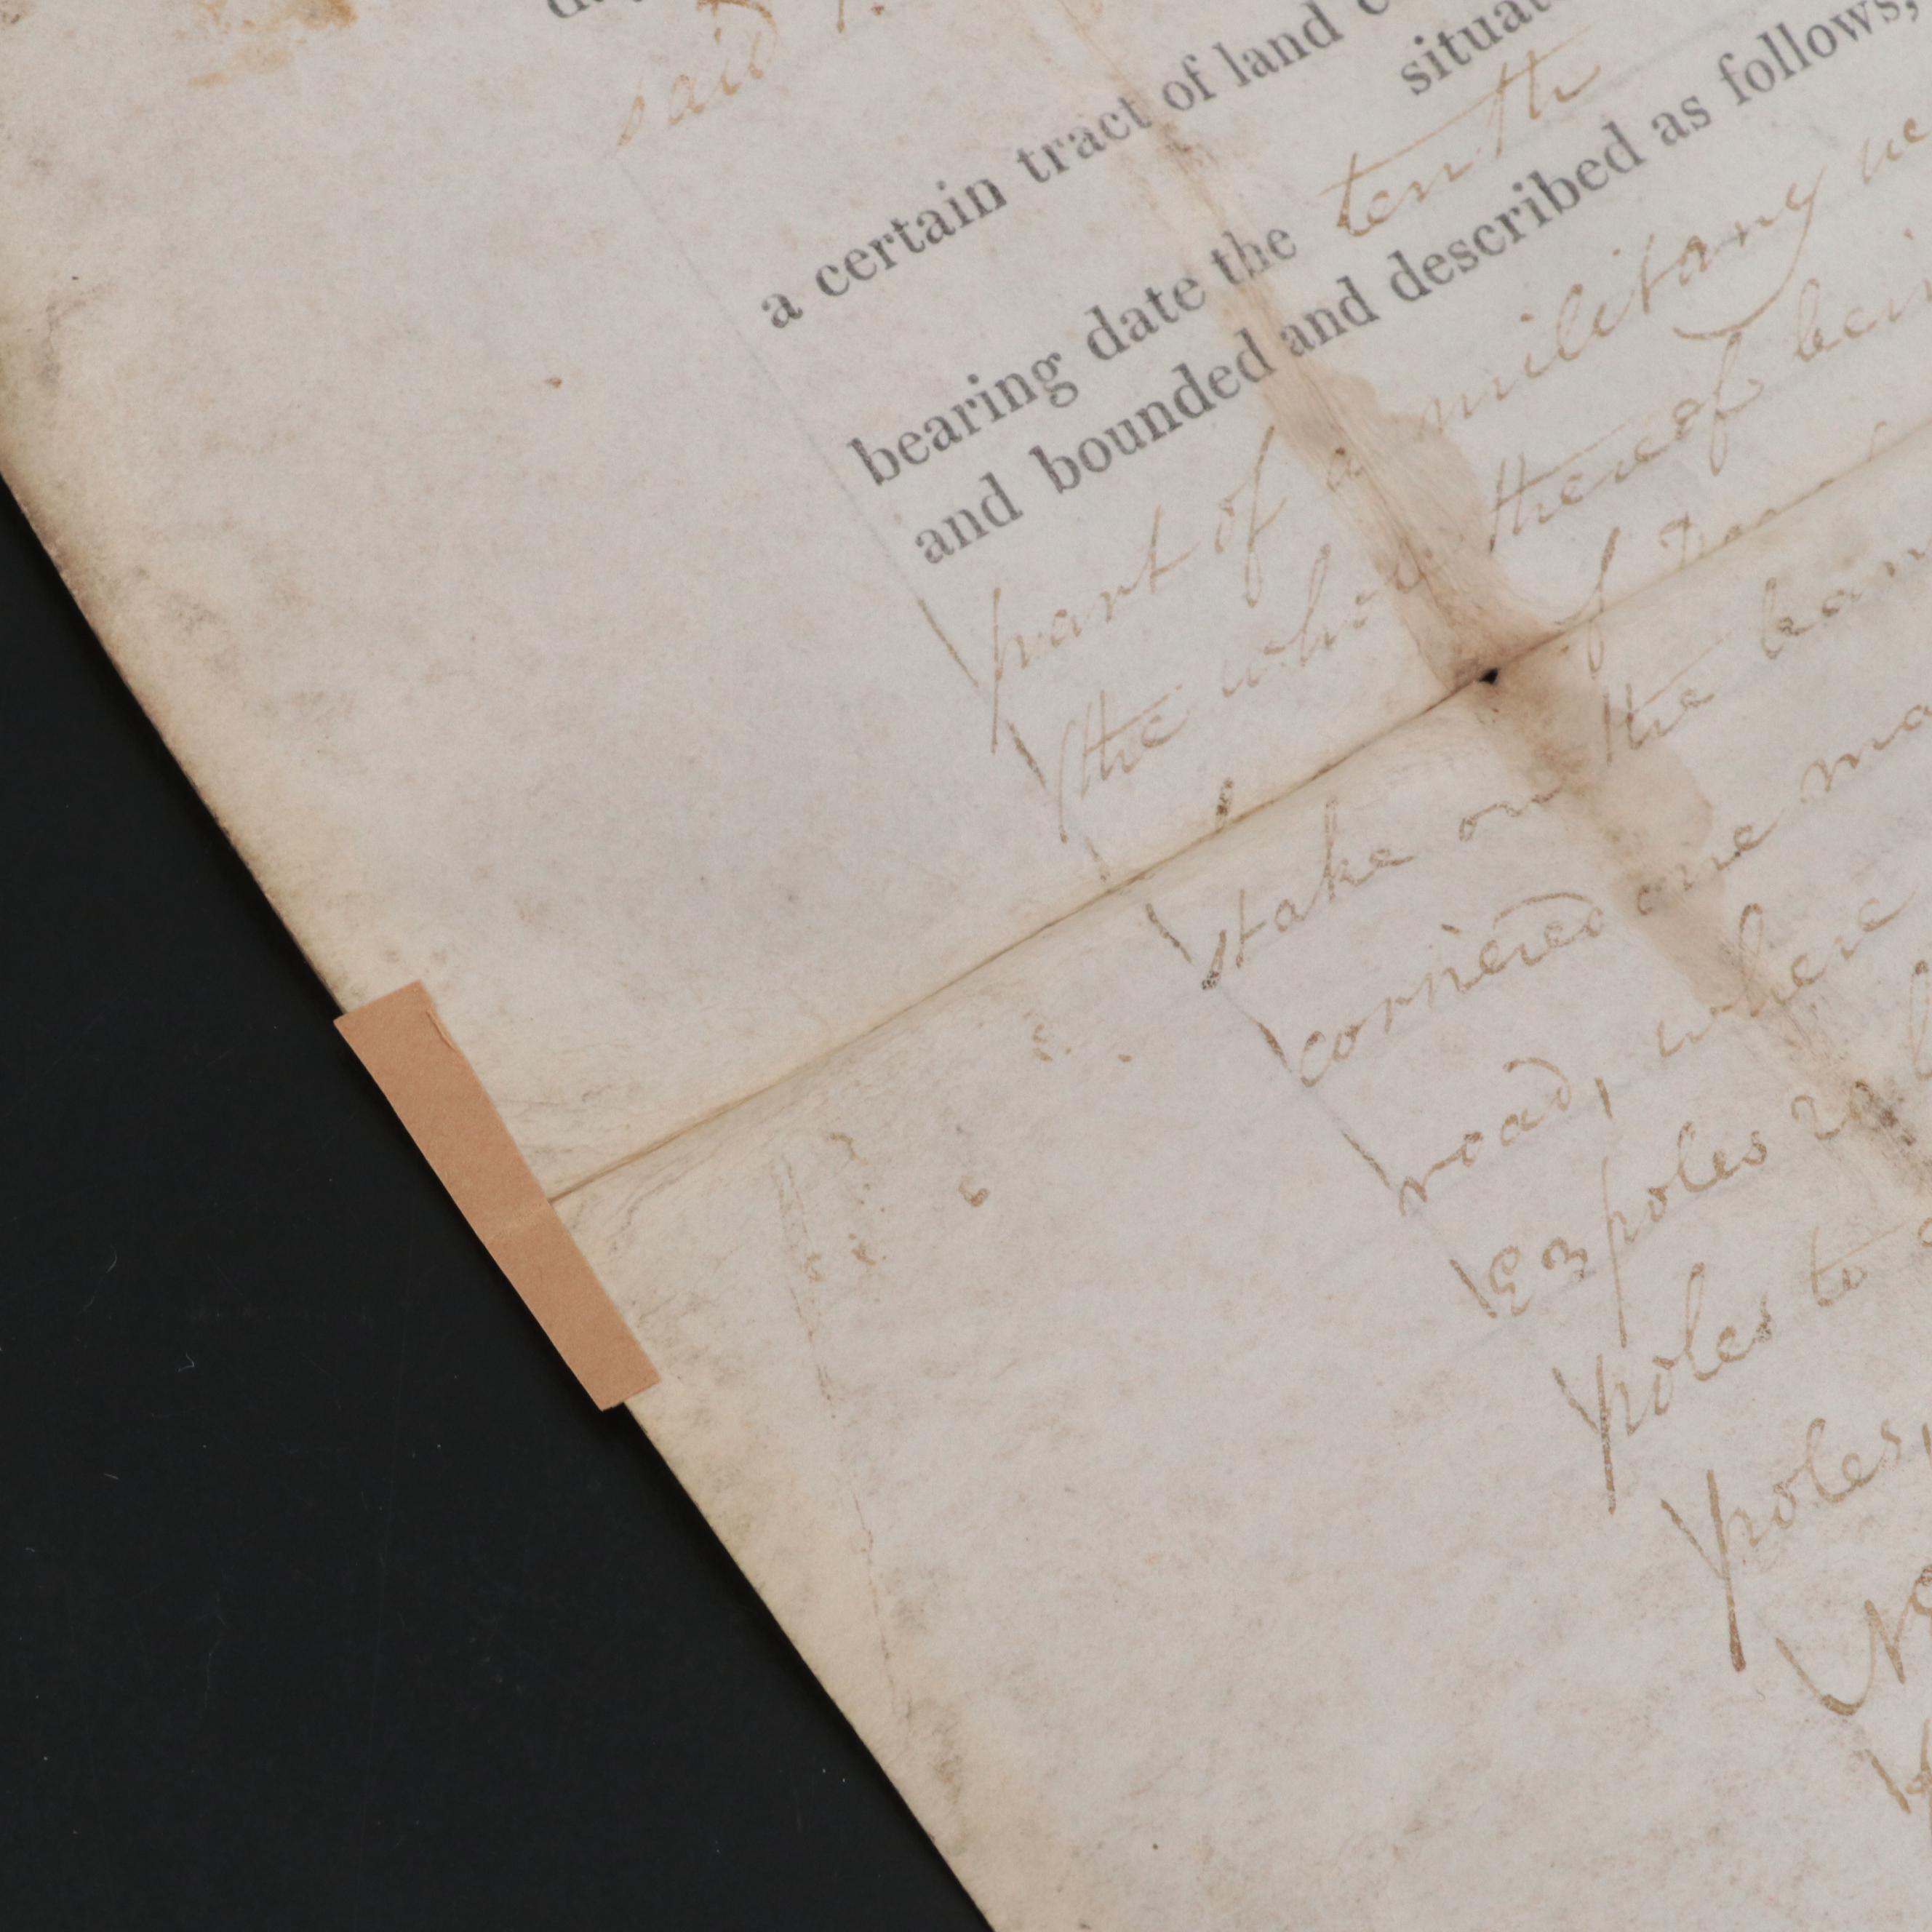 said
a certain tract of land
situat
bearing date the tenth
and bounded and described as follows,
part of a military
the whole thereof bein
stake on the ban
cornered one ma
road, where
E 3 poles 20
poles to
poles,